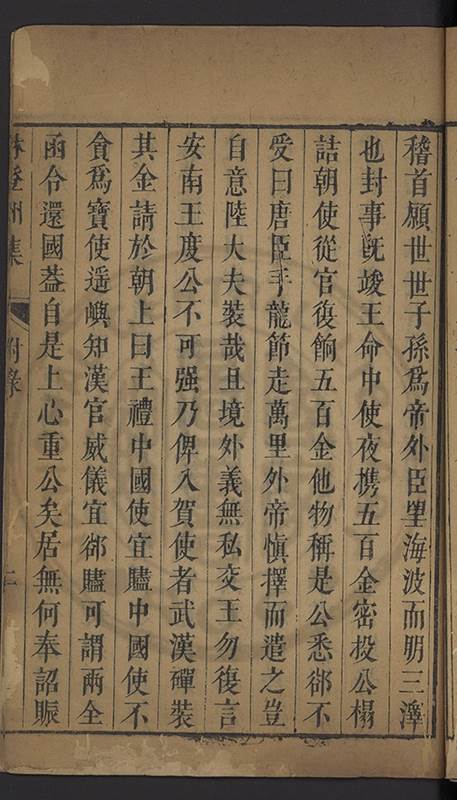 稽首願世世子孫爲帝外臣里海波而明三澤
也封事旣竣王命中使夜携五百金密投公榻
詰朝使從官復餉五百金他物稱是公悉郤不
受曰唐臣手龍節走萬里外帝慎擇而遣之豈
自意陸大夫裝哉且境外義無私交王勿復言
安南王度公不可强乃俾入賀使者武漢磾裝
其金請於朝上曰王禮中國使宜贐中國使不
貪爲寶使遥嶼知漢官威儀宜郤贐可謂兩全
函令還國葢自是上心重公矣居無何奉詔賑
林登州集
附錄
二